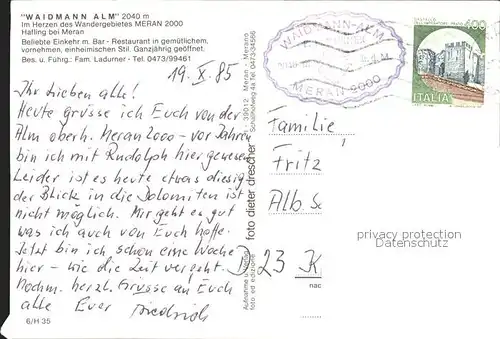 "WAIDMANN ALM" 2040 m
Im Herzen des Wandergebietes MERAN 2000
Hafling bei Meran
Beliebte Einkehr m. Bar - Restaurant in gemütlichem,
vornehmen, einheimischen Stil. Ganzjährig geöffnet.
Bes. u. Führg.: Fam. Ladurner - Tel. 0473/99461
19. X. 85
Ihr Lieben alle!
Heute grüsse ich Euch von der
Alm oberh. Meran 2000 - vor Jahren
bin ich mit Rudolph hier gewesen
Leider ist es heute etwas diesig
der Blick in die Dolomiten ist
nicht möglich. Mir geht es gut
was ich auch von Euch hoffe.
Jetzt bin ich schon eine Woche
hier - wie die Zeit vergeht.
Nochm. herzl. Grüsse an Euch
alle Euer Friedrich
6/H 35
foto dieter drescher
I - 39012 Meran - Merano
WAIDMANN-ALM
MERAN 2000
400
ITALIA
Familie
Fritz
Alb. S
D 23 K
privacy protection
Datenschutz